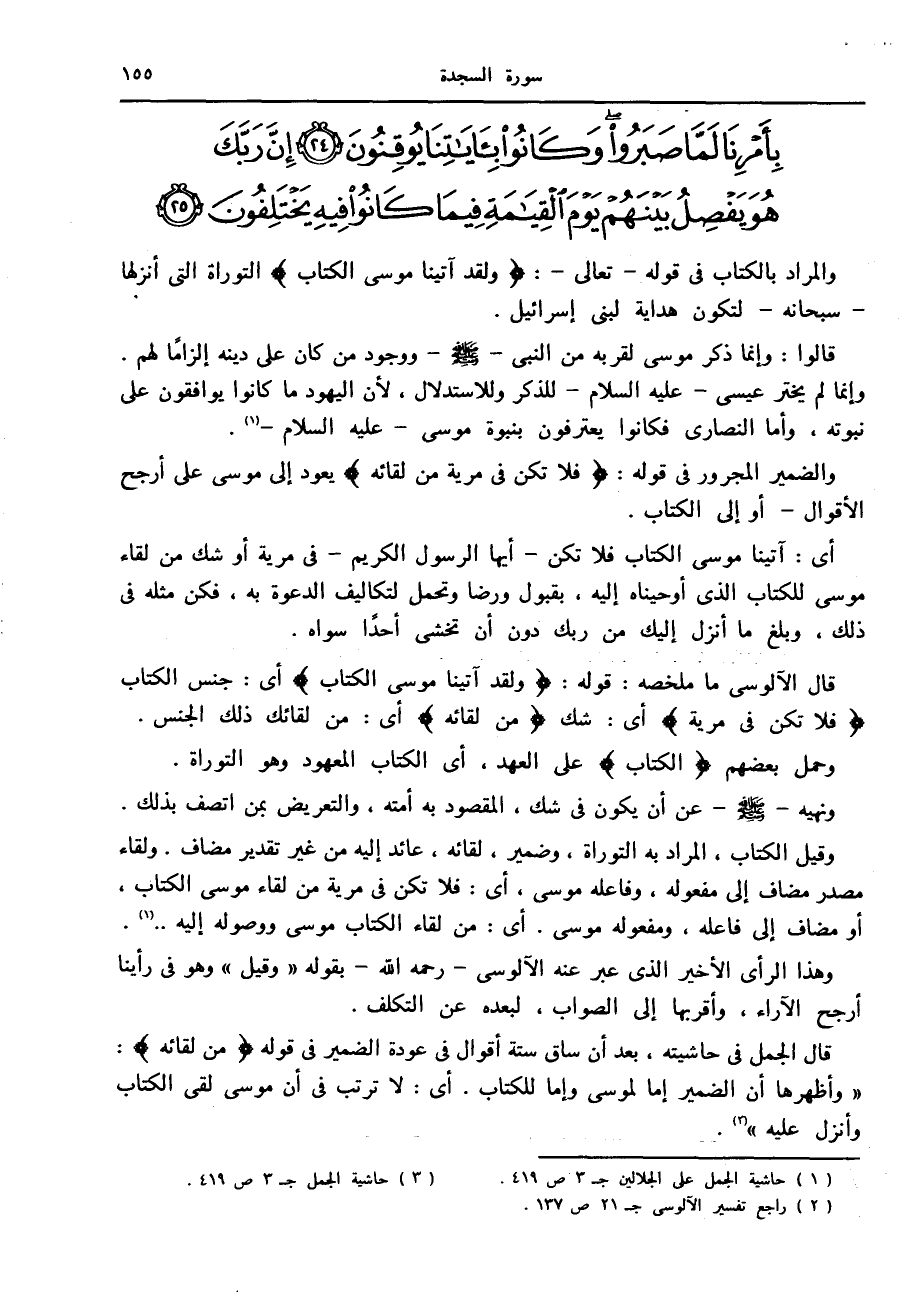 سورة السجدة ١٥٥
بِأَمْرِنَا لَمَّا صَبَرُواْ ۖ وَكَانُواْ بِـَٔايَٰتِنَا يُوقِنُونَ ٢٤ إِنَّ رَبَّكَ
هُوَ يَفْصِلُ بَيْنَهُمْ يَوْمَ ٱلْقِيَٰمَةِ فِيمَا كَانُواْ فِيهِ يَخْتَلِفُونَ ٢٥
والمراد بالكتاب فى قوله - تعالى - : ﴿ ولقد آتينا موسى الكتاب ﴾ التوراة التى أنزلها
- سبحانه - لتكون هداية لبنى إسرائيل .
قالوا : وإنما ذكر موسى لقربه من النبى - ﷺ - ووجود من كان على دينه إلزامًا لهم .
وإنما لم يختر عيسى - عليه السلام - للذكر وللاستدلال ، لأن اليهود ما كانوا يوافقون على
نبوته ، وأما النصارى فكانوا يعترفون بنبوة موسى - عليه السلام -(١) .
والضمير المجرور فى قوله : ﴿ فلا تكن فى مرية من لقائه ﴾ يعود إلى موسى على أرجح
الأقوال - أو إلى الكتاب .
أى : آتينا موسى الكتاب فلا تكن - أيها الرسول الكريم - فى مرية أو شك من لقاء
موسى للكتاب الذى أوحيناه إليه ، بقبول ورضا وتحمل لتكاليف الدعوة به ، فكن مثله فى
ذلك ، وبلغ ما أنزل إليك من ربك دون أن تخشى أحدًا سواه .
قال الآلوسى ما ملخصه : قوله : ﴿ ولقد آتينا موسى الكتاب ﴾ أى : جنس الكتاب
﴿ فلا تكن فى مرية ﴾ أى : شك ﴿ من لقائه ﴾ أى : من لقائك ذلك الجنس .
وحمل بعضهم ﴿ الكتاب ﴾ على العهد ، أى الكتاب المعهود وهو التوراة .
ونهيه - ﷺ - عن أن يكون فى شك ، المقصود به أمته ، والتعريض بمن اتصف بذلك .
وقيل الكتاب ، المراد به التوراة ، وضمير ، لقائه ، عائد إليه من غير تقدير مضاف . ولقاء
مصدر مضاف إلى مفعوله ، وفاعله موسى ، أى : فلا تكن فى مرية من لقاء موسى الكتاب ،
أو مضاف إلى فاعله ، ومفعوله موسى . أى : من لقاء الكتاب موسى ووصوله إليه ..(١) .
وهذا الرأى الأخير الذى عبر عنه الآلوسى - رحمه الله - بقوله « وقيل » وهو فى رأينا
أرجح الآراء ، وأقربها إلى الصواب ، لبعده عن التكلف .
قال الجمل فى حاشيته ، بعد أن ساق ستة أقوال فى عودة الضمير فى قوله ﴿ من لقائه ﴾ :
« وأظهرها أن الضمير إما لموسى وإما للكتاب . أى : لا ترتب فى أن موسى لقى الكتاب
وأنزل عليه »(٣) .
( ١ ) حاشية الجمل على الجلالين جـ ٣ ص ٤١٩ . ( ٣ ) حاشية الجمل جـ ٣ ص ٤١٩ .
( ٢ ) راجع تفسير الآلوسى جـ ٢١ ص ١٣٧ .